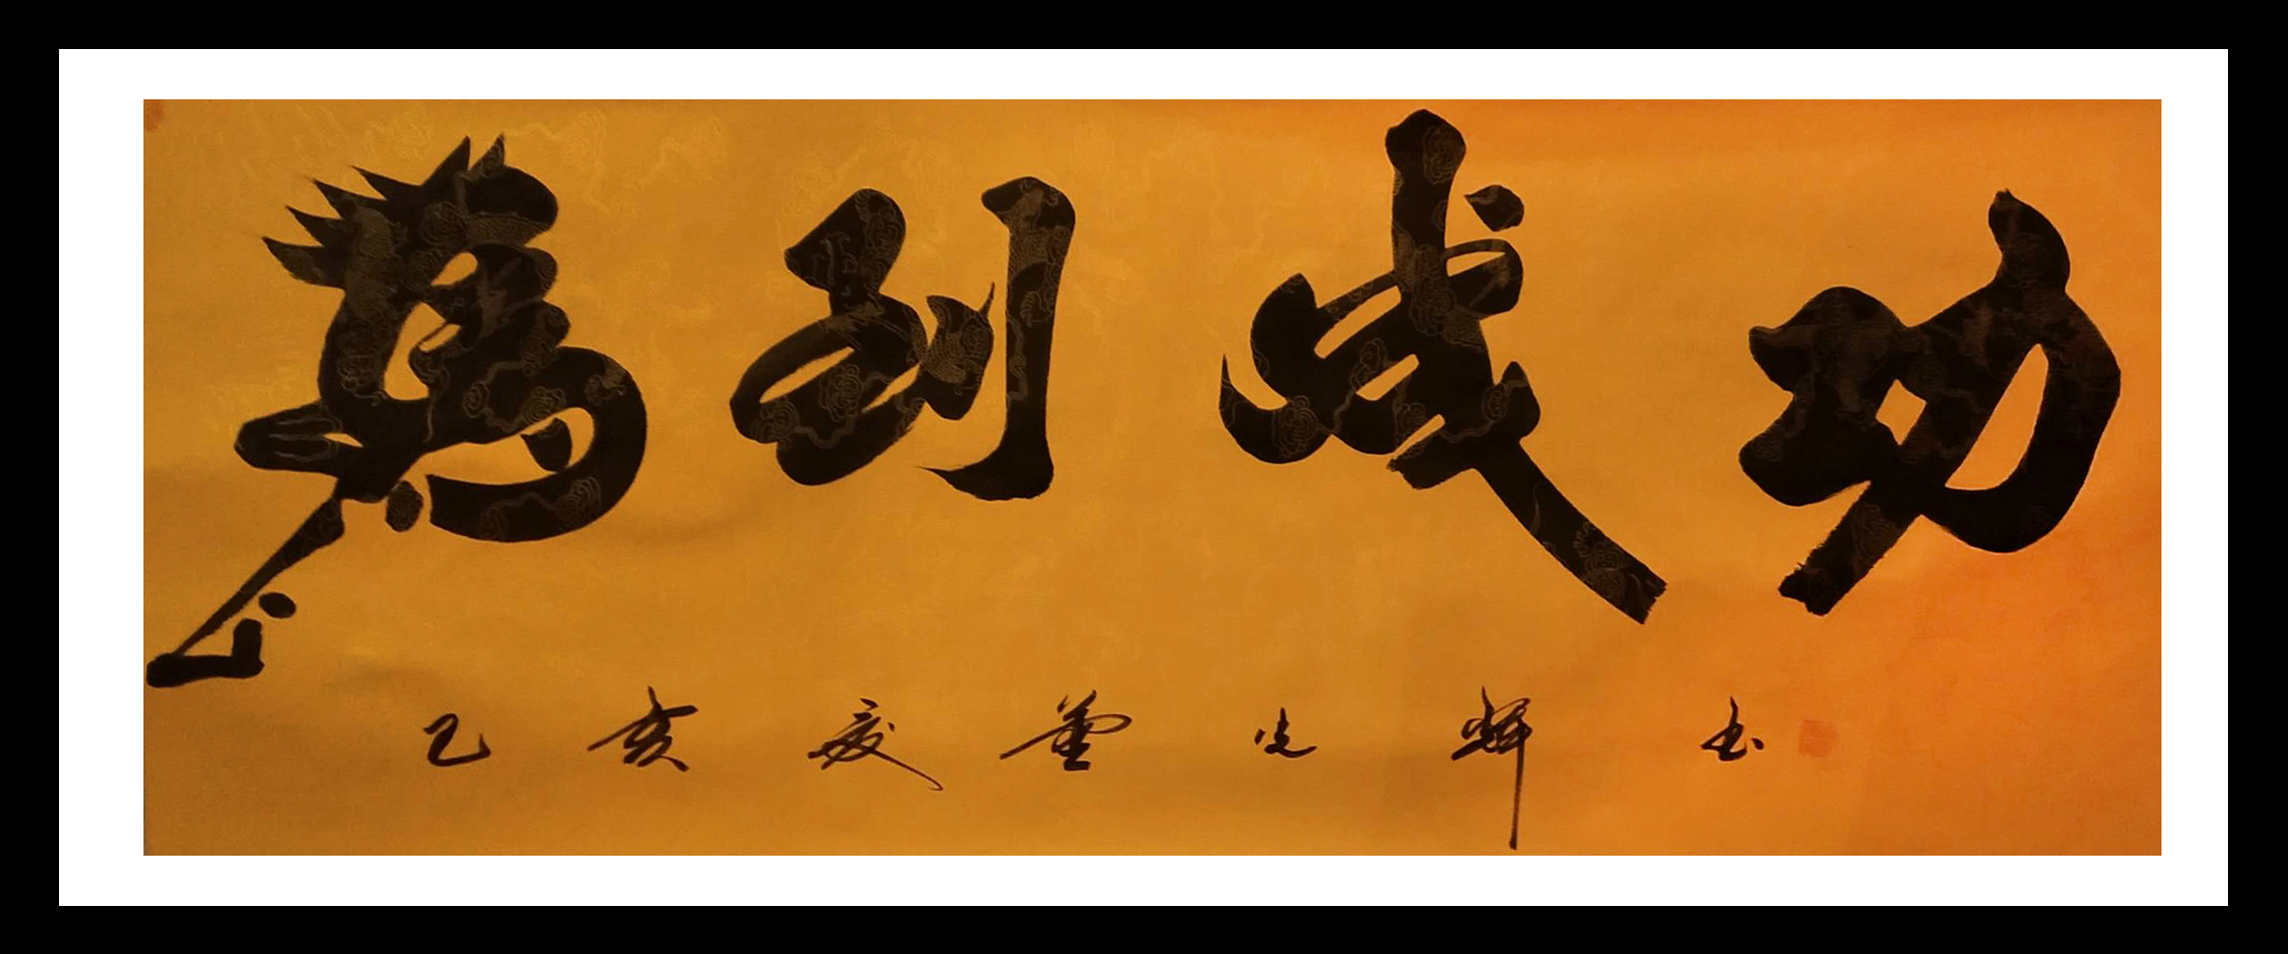 馬到成功
乙亥夏董光輝書